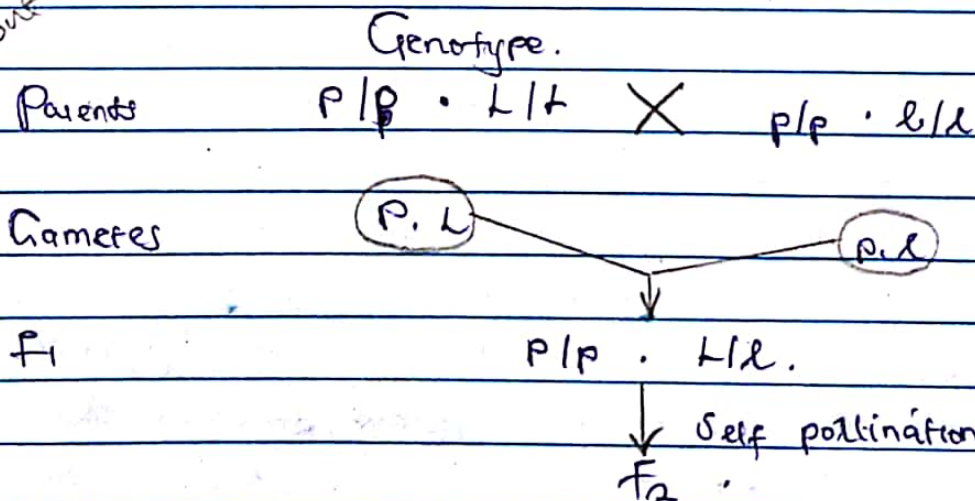 Genotype.
Parents P/P · L/L X p/p · l/l
Gametes P. L p. l
F1 P/p · L/l.
Self pollination
F2 .